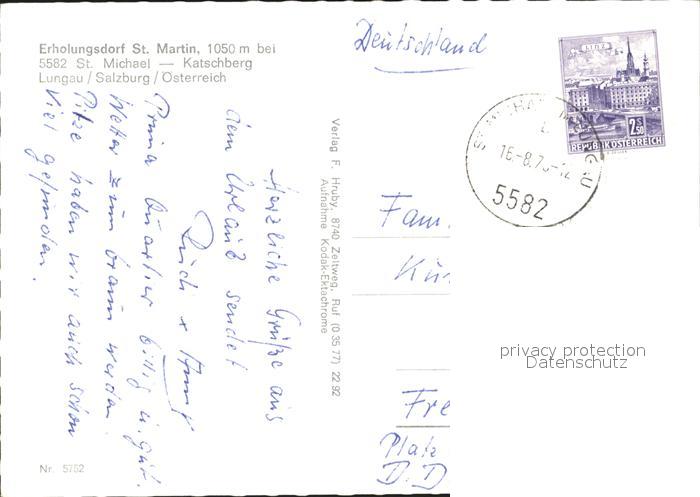 Erholungsdorf St. Martin, 1050 m bei
5582 St. Michael — Katschberg
Lungau / Salzburg / Österreich
Deutschland
LINZ
2.50
REPUBLIK ÖSTERREICH
16.-8.7
5582
Herzliche Grüße aus
dem Urlaub sendet
Prima Quartier billig u. gut.
Wetter zum braun werden.
Pilze haben wir auch schon
viel gefunden.
Verlag F. Hruby, 8740 Zeltweg, Ruf (0 35 77) 22 92
Aufnahme Kodak-Ektachrome
Fam.
Fre
Platz
D.D
privacy protection
Datenschutz
Nr. 5752